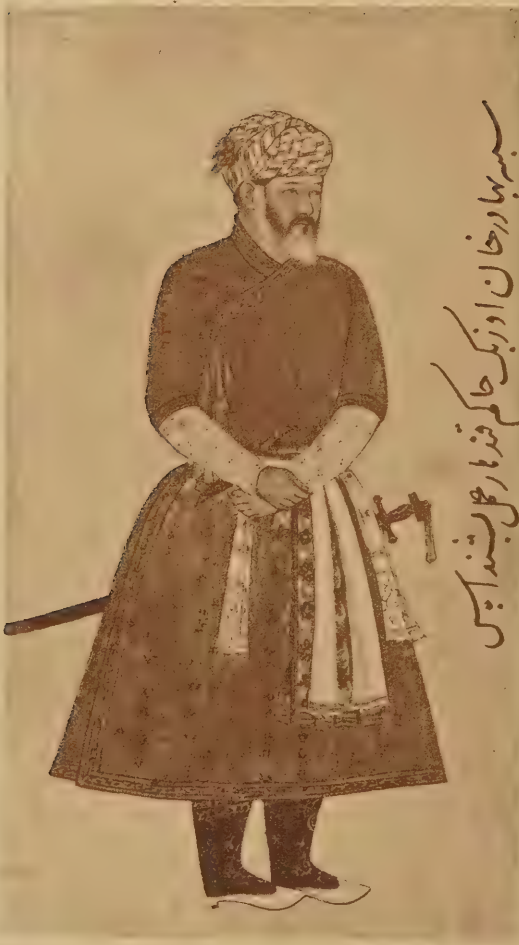 شبیه بهادر خان اوزبک حاکم قندهار عمل بشنداس